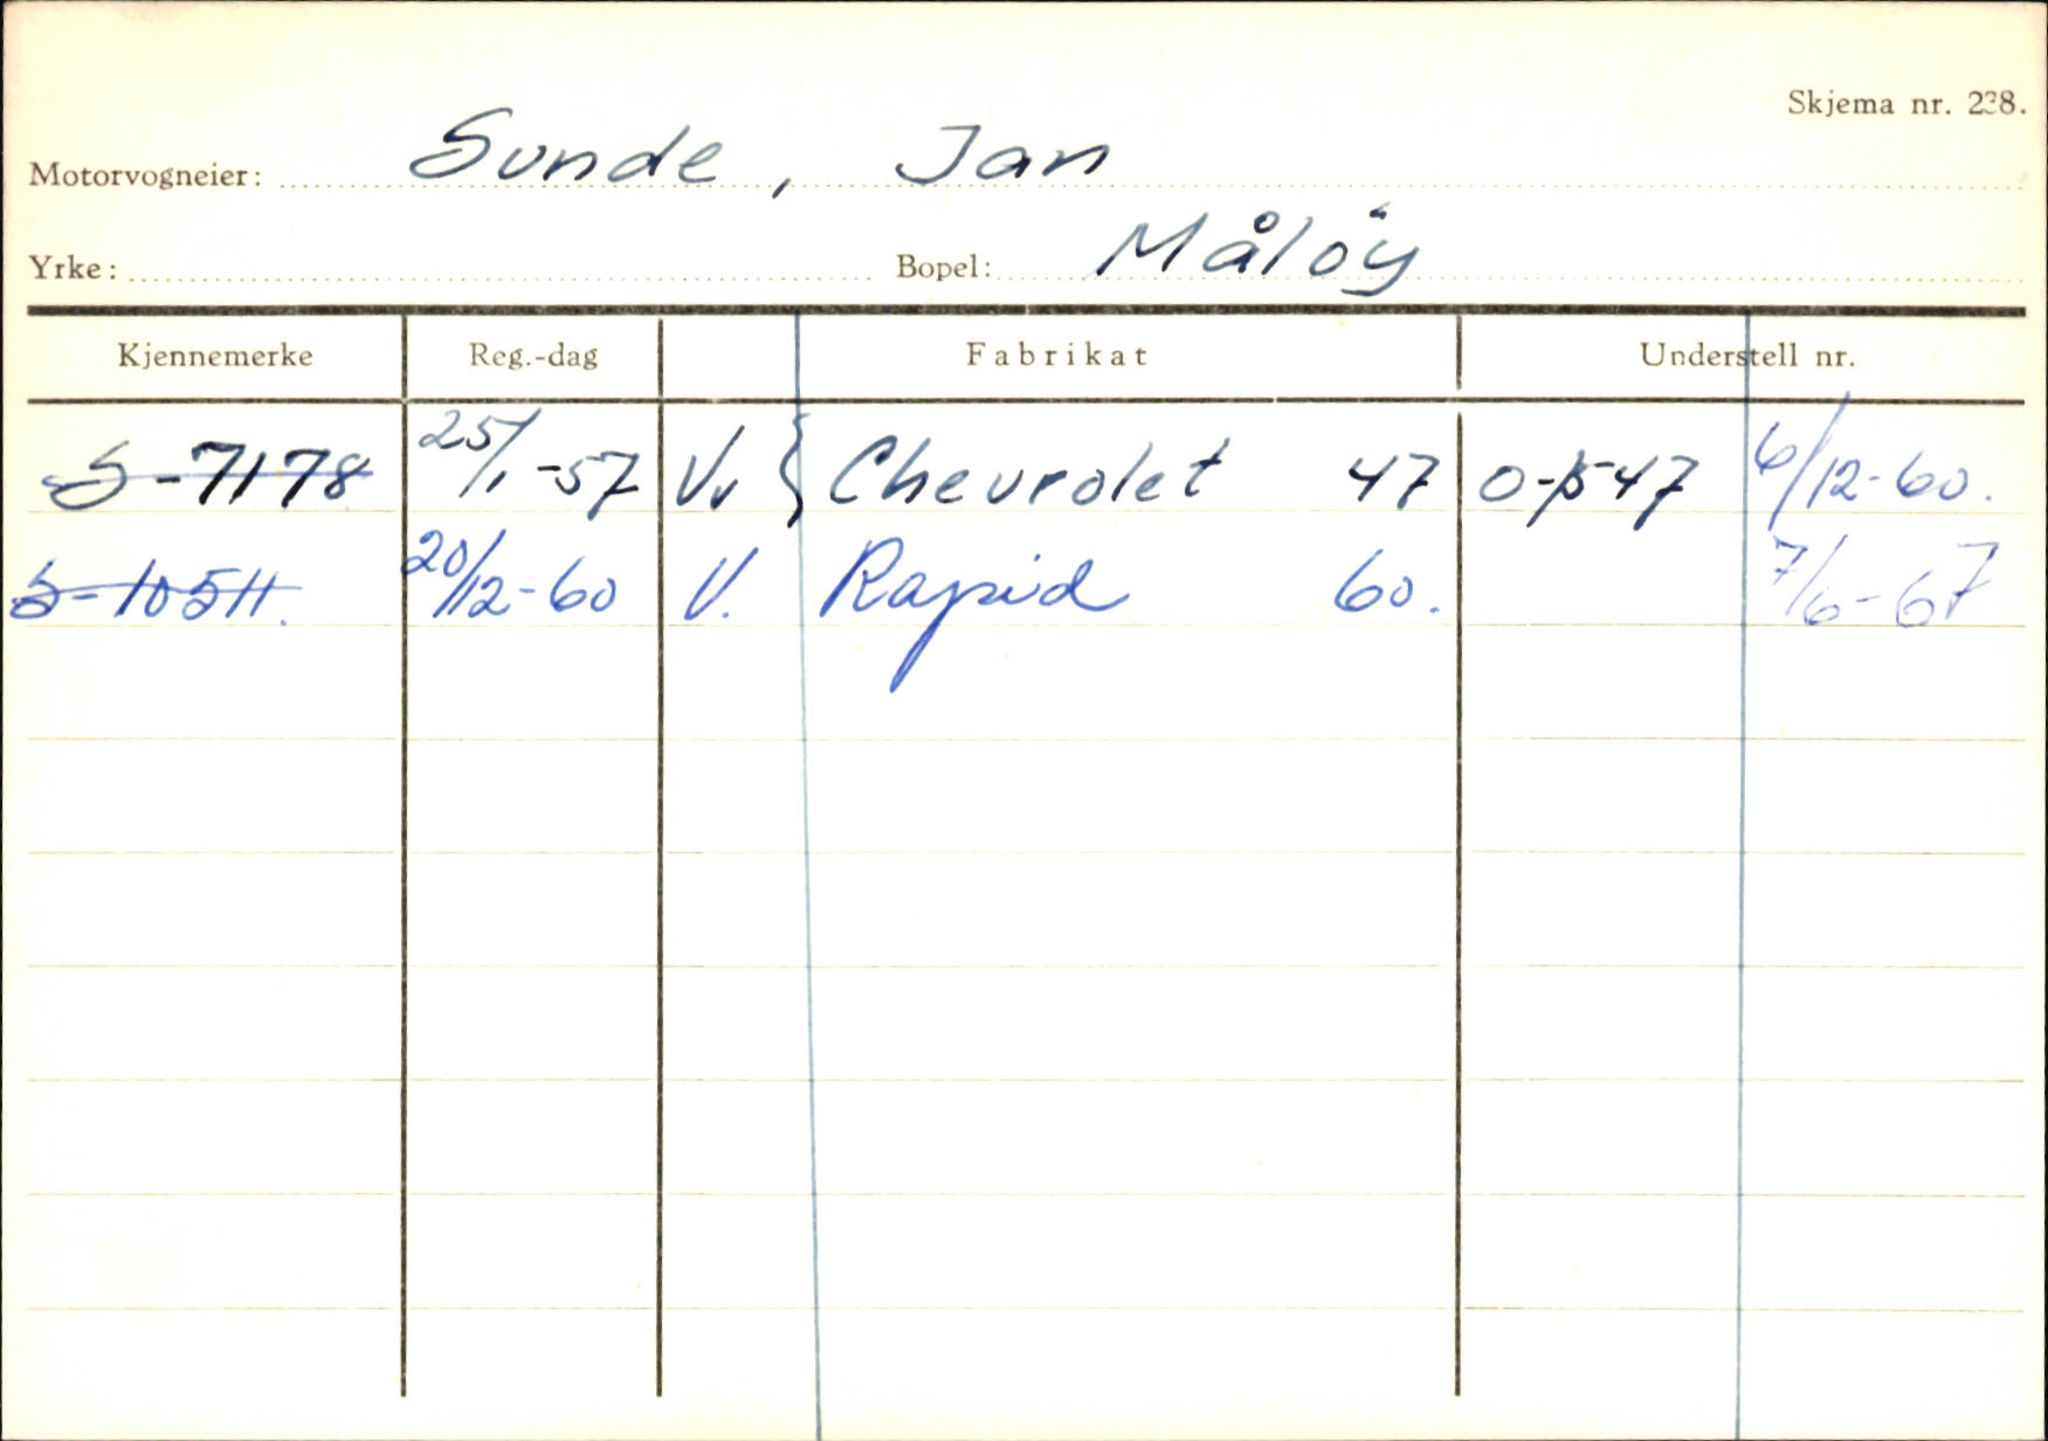 Skjema nr. 238.
Motorvogneier: Sunde, Jan
Yrke: Bopel: Målöy
Kjennemerke Reg.-dag Fabrikat Understell nr.
S-7178 25/1-57 Vv { Chevrolet 47 6/12-60.
S-10511. 20/12-60 V. Rapid 60. 7/6-67